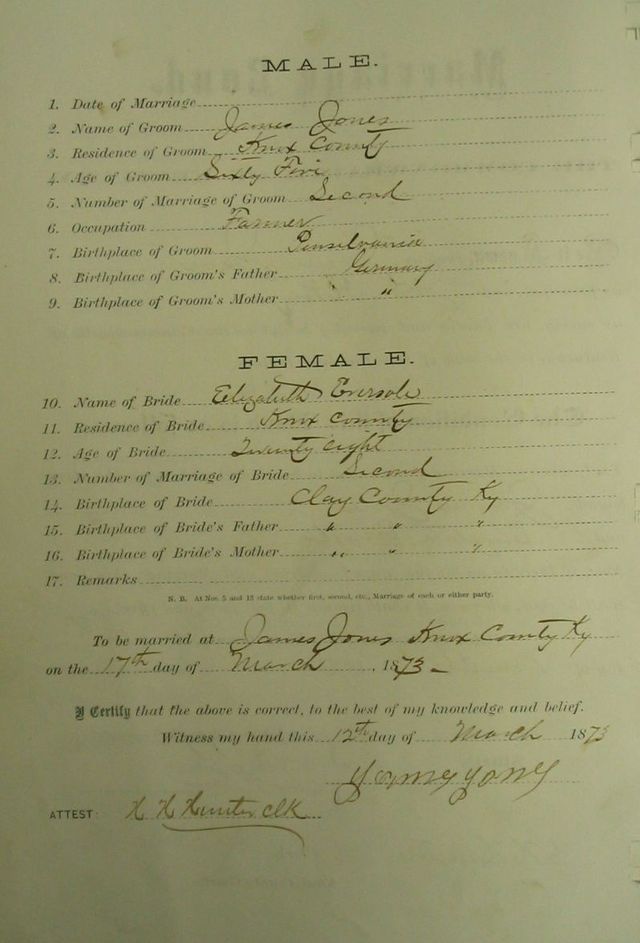 MALE.
1. Date of Marriage
2. Name of Groom James Jones
3. Residence of Groom Knox County
4. Age of Groom Sixty Five
5. Number of Marriage of Groom Second
6. Occupation Farmer
7. Birthplace of Groom Pensilvania
8. Birthplace of Groom's Father Germany
9. Birthplace of Groom's Mother " "
FEMALE.
10. Name of Bride Elizabeth Eversole
11. Residence of Bride Knox County
12. Age of Bride Twenty eight
13. Number of Marriage of Bride Second
14. Birthplace of Bride Clay County Ky
15. Birthplace of Bride's Father " " "
16. Birthplace of Bride's Mother " " "
17. Remarks
N. B. At Nos. 5 and 13 state whether first, second, etc., Marriage of each or either party.
To be married at James Jones Knox County Ky
on the 17th day of March , 1873
I Certify that the above is correct, to the best of my knowledge and belief.
Witness my hand this 12th day of March 1873
ATTEST: Hunter clk